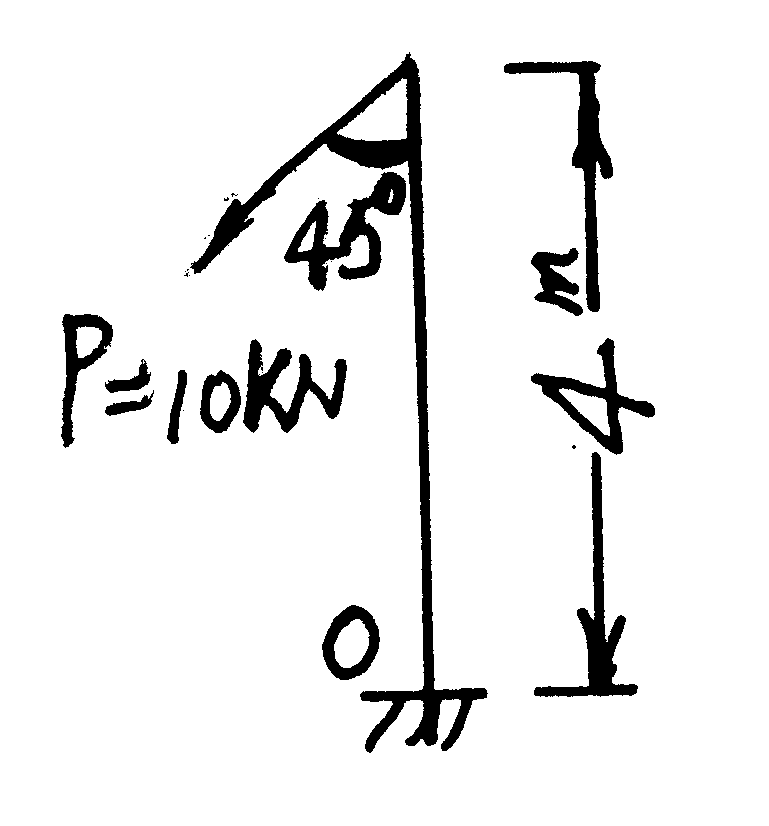 45°
P=10KN
4m
O